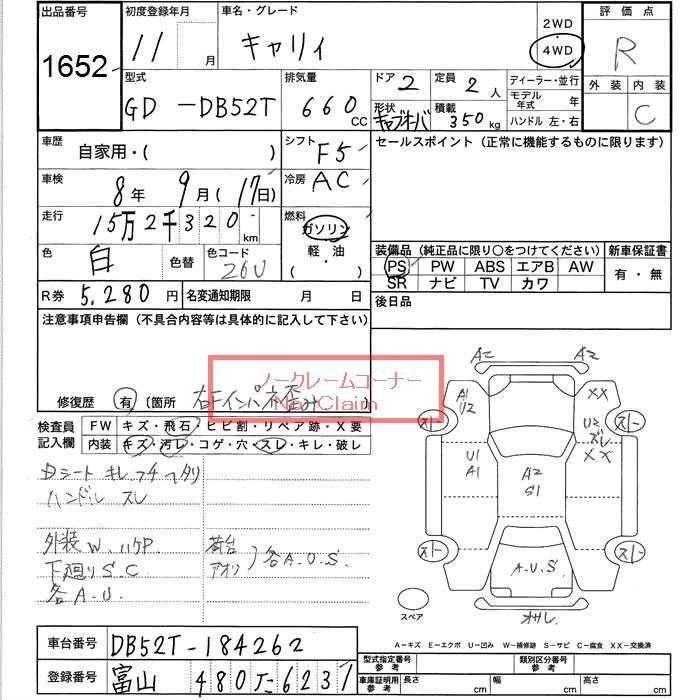 出品番号
1652
初度登録年月
11 月
車名・グレード
キャリィ
2WD
4WD
評価点
R
外装 内装
C
型式
GD -DB52T
排気量
660 CC
ドア 2
定員 2 人
形状 キャブオーバ
積載 350 kg
ディーラー・並行
モデル年式 年
ハンドル 左・右
車歴
自家用・( )
シフト F5
セールスポイント (正常に機能するものに限ります)
車検
8年 9月 (17日)
冷房 AC
走行
15万2千320 km
燃料
ガソリン
軽・油
( )
色
白
色替
色コード
26U
装備品 (純正品に限り○をつけてください)
新車保証書
PS PW ABS エアB AW
SR ナビ TV カワ
有・無
R券 5,280 円
名変通知期限 月 日
後日品
注意事項申告欄 (不具合内容等は具体的に記入して下さい)
ノークレームコーナー
No Claim
修復歴 有 (箇所 右Fインパネ歪み
検査員記入欄
FW キズ・飛石・ヒビ割・リペア跡・X要
内装 キズ・汚レ・コゲ・穴・スレ・キレ・破レ
Dシート キレ フチ ヘタリ
ハンドル スレ
外装 W. ハケP
下廻り S.C
各A.U
荷台
アオリ
各A.U.S
A2 A2
A1
U2
XX
U2
ズレ
XX
U1
A1
A2
S1
A.U.S
スト
スト
スト
スト
オサレ
スペア
A-キズ E-エクボ U-凹み W-補修跡 S-サビ C-腐食 XX-交換済
車台番号
DB52T-184262
登録番号
富山 480 た 6237
型式指定番号 参考
類別区分番号 参考
車庫証明用 参考
長さ cm 幅 cm 高さ cm